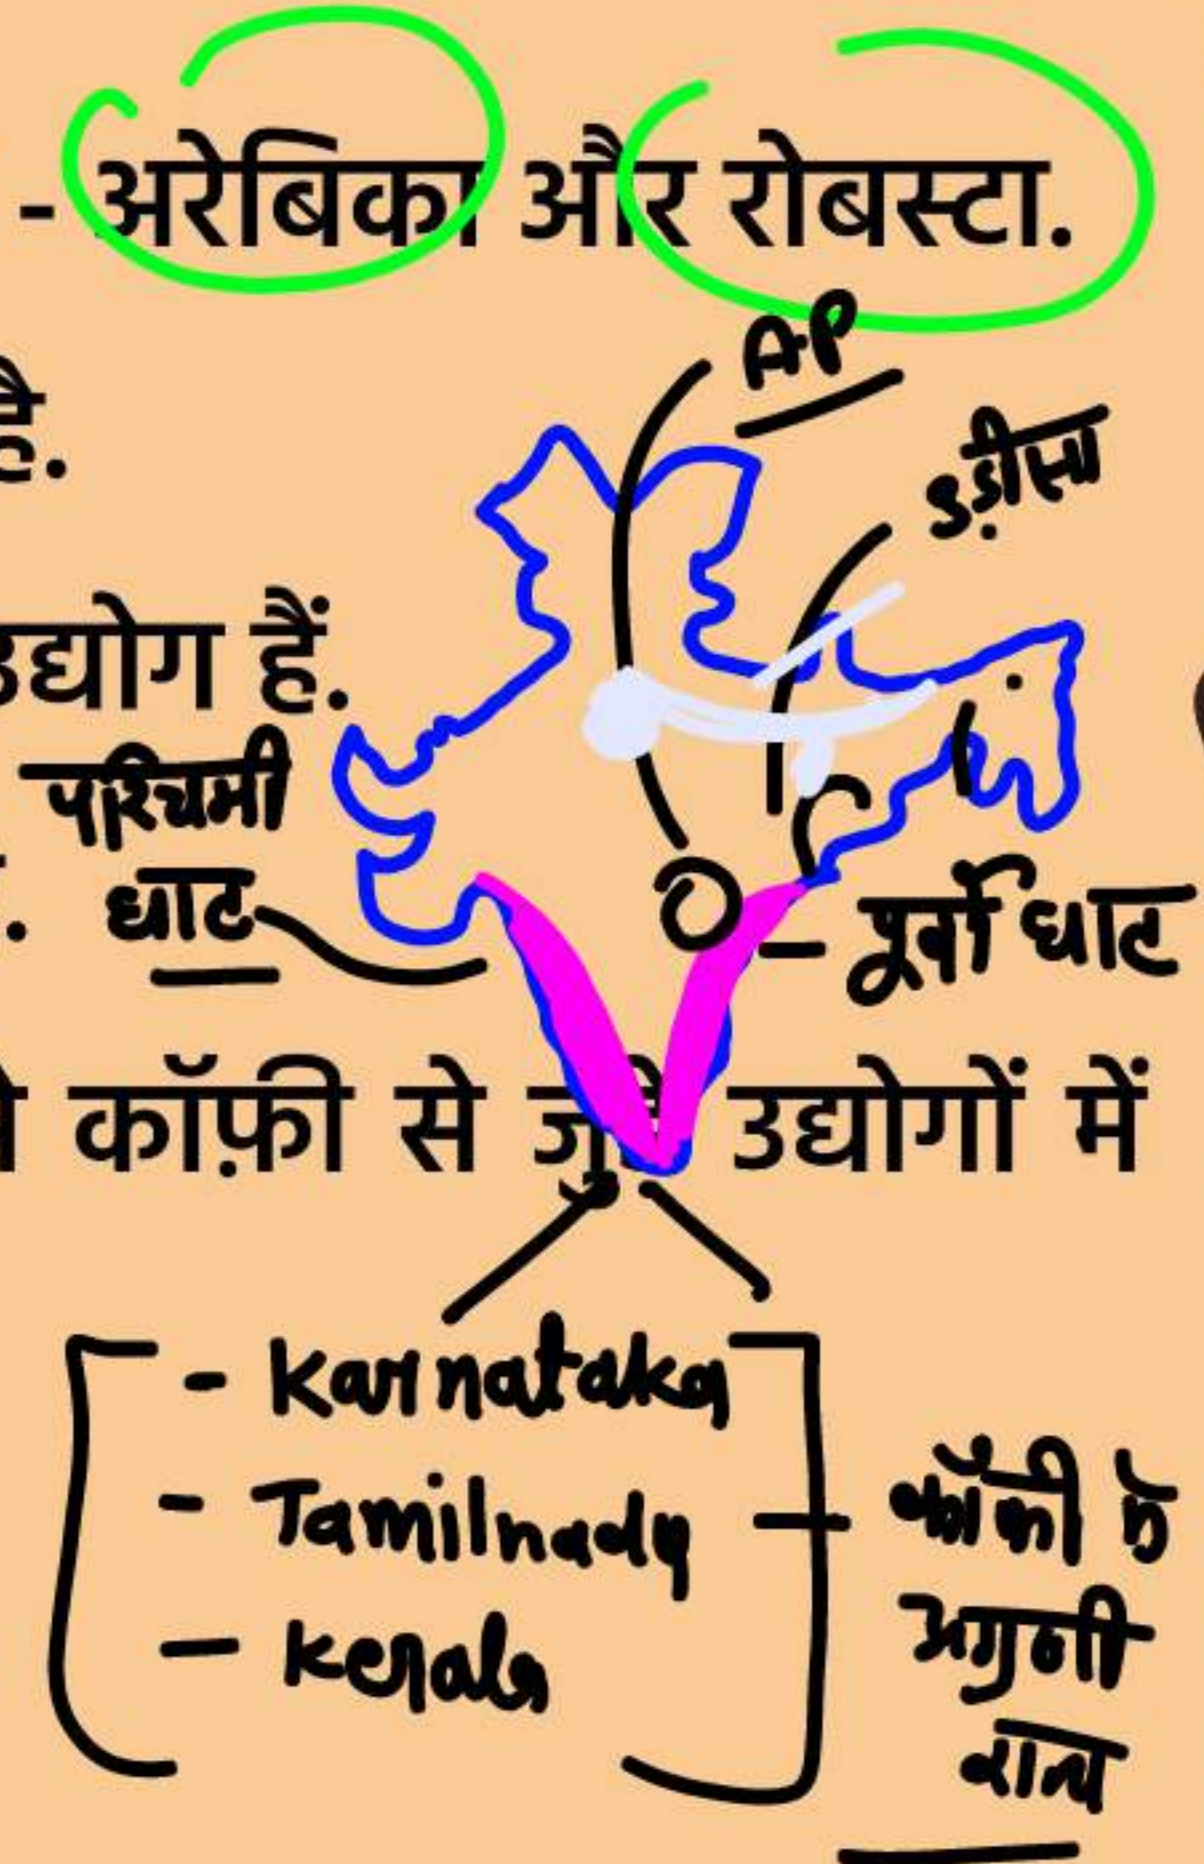 - अरेबिका और रोबस्टा.
AP
उड़ीसा
है.
उद्योग हैं.
पश्चिमी
घाट
पूर्वी घाट
कॉफ़ी से जुड़े उद्योगों में
- Karnataka
- Tamilnadu
- Kerala
कॉफी के
अग्रणी
राज्य